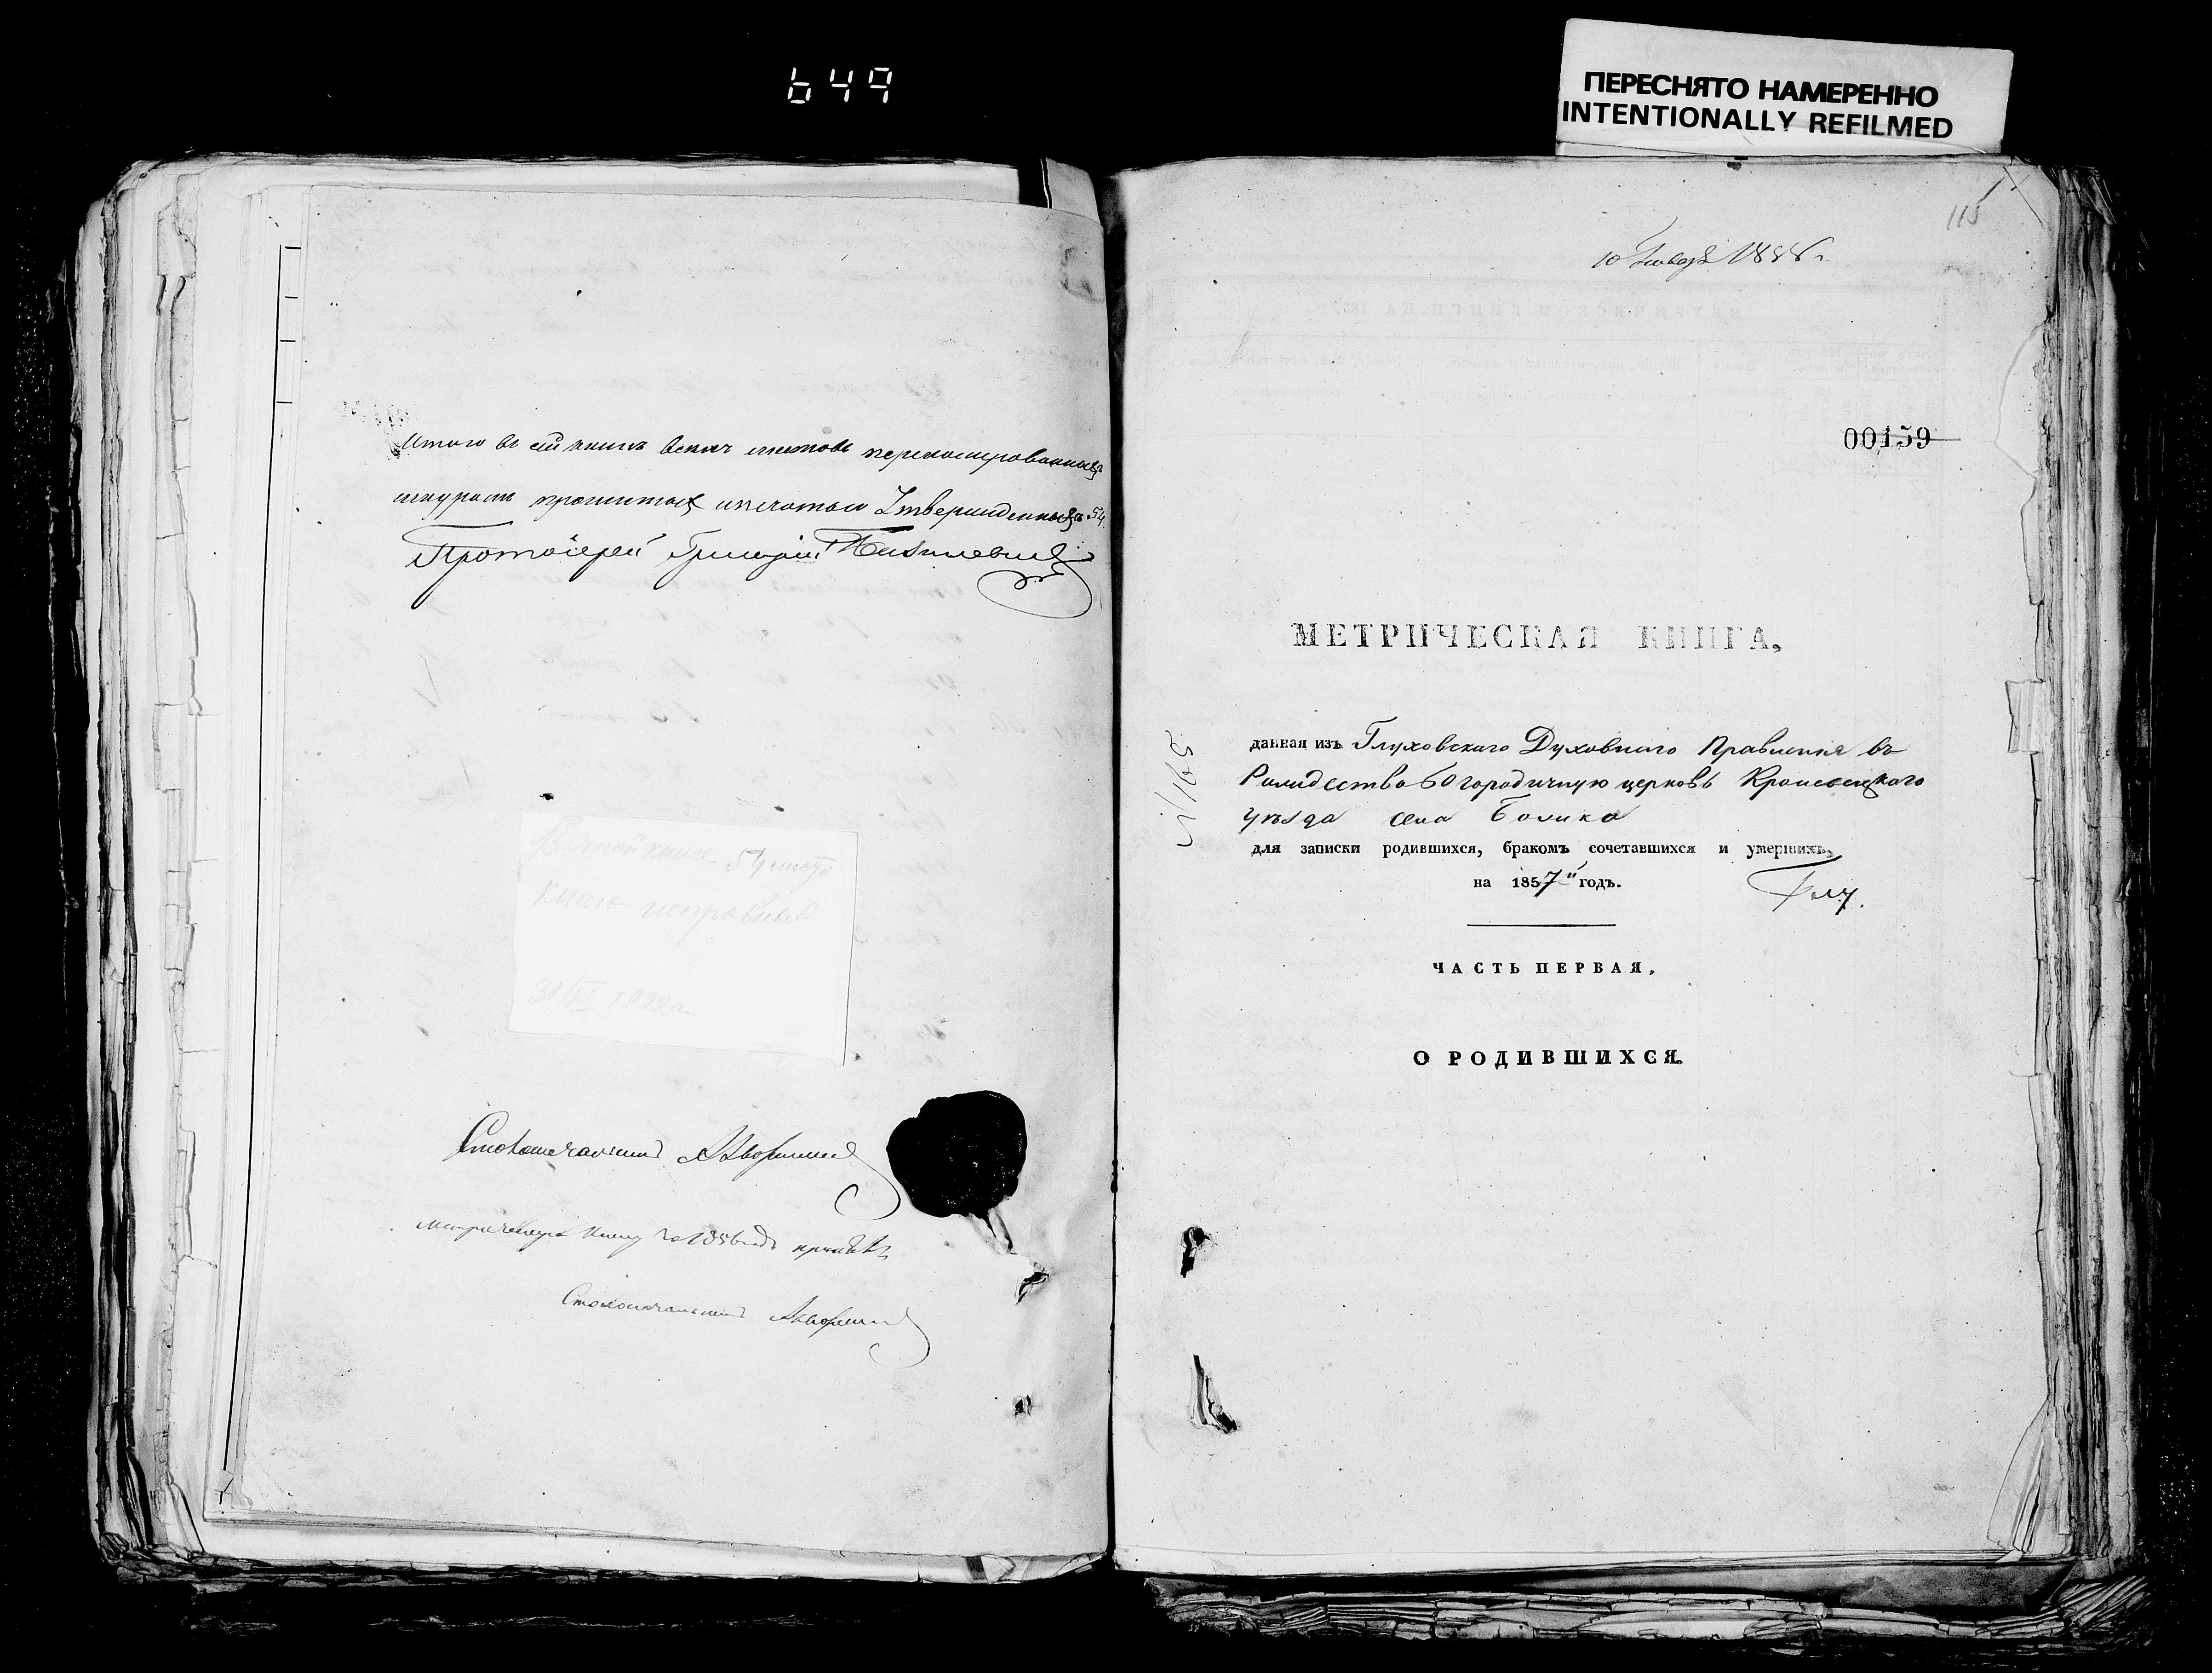 649
ПЕРЕСНЯТО НАМЕРЕННО
INTENTIONALLY REFILMED
Итого въ сей книгѣ всѣхъ листовъ перенумерованныхъ
шнуромъ прошитыхъ и печатью утвержденныхъ 54.
Протоіерей Григорій Базилевичъ
В этой книге 54 листа
31/VII 1922 г.
Столоначальникъ
Метрическую книгу за 1856 годъ
Столоначальникъ
115
10 Января 1858 г.
00159
МЕТРИЧЕСКАЯ КНИГА,
данная изъ Глуховскаго Духовнаго Правленія въ
Рождество-Богородичную церковь Кролевецкаго
уѣзда села
для записки родившихся, бракомъ сочетавшихся и умершихъ,
на 1857й годъ.
ЧАСТЬ ПЕРВАЯ.
О РОДИВШИХСЯ.